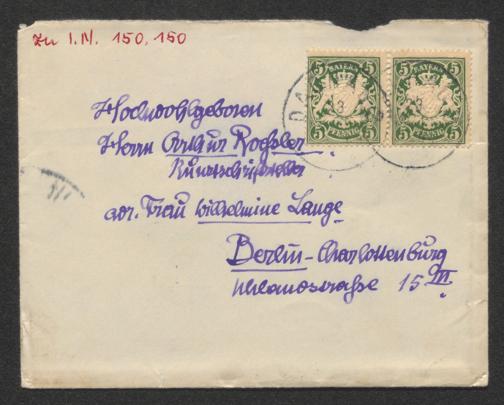 Zu I.N. 150.150
5 BAYERN 5
5 PFENNIG 5
5 BAYERN 5
5 PFENNIG 5
Hochwohlgeboren
Herrn Arthur Roessler
Kunstschriftsteller
adr. Frau Wilhelmine Lange
Berlin-Charlottenburg
Uhlandstraße 15 III.